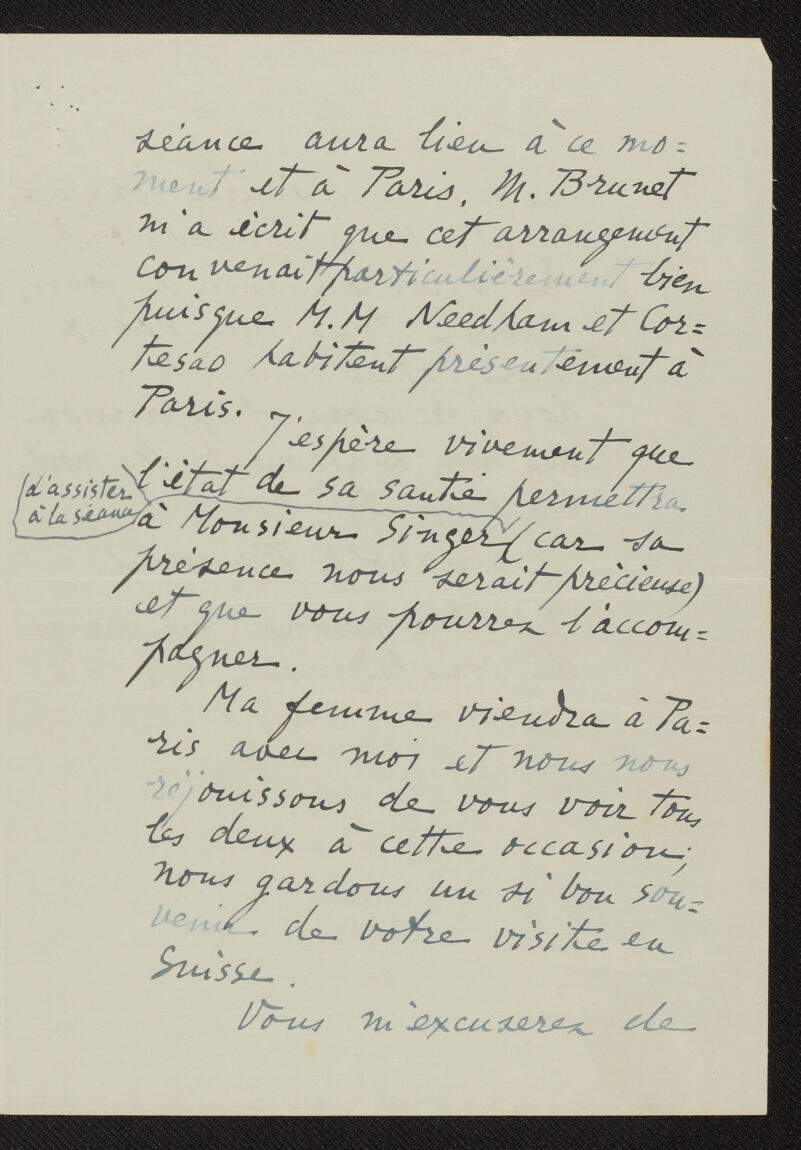 séance aura lieu à ce mo=
ment et à Paris. M. Brunet
m'a écrit que cet arrangement
convenait particulièrement bien
puisque M.M Needham et Cor=
tesao habitent présentement à
Paris.
J'espère vivement que
l'état de sa santé permettra
(d'assister
à la séance
à Monsieur Singer (car sa
présence nous serait précieuse)
et que vous pourrez l'accom=
pagner.
Ma femme viendra à Pa=
ris avec moi et nous nous
réjouissons de vous voir tous
les deux à cette occasion;
nous gardons un si bon sou=
venir de votre visite en
Suisse.
Vous m'excuserez de